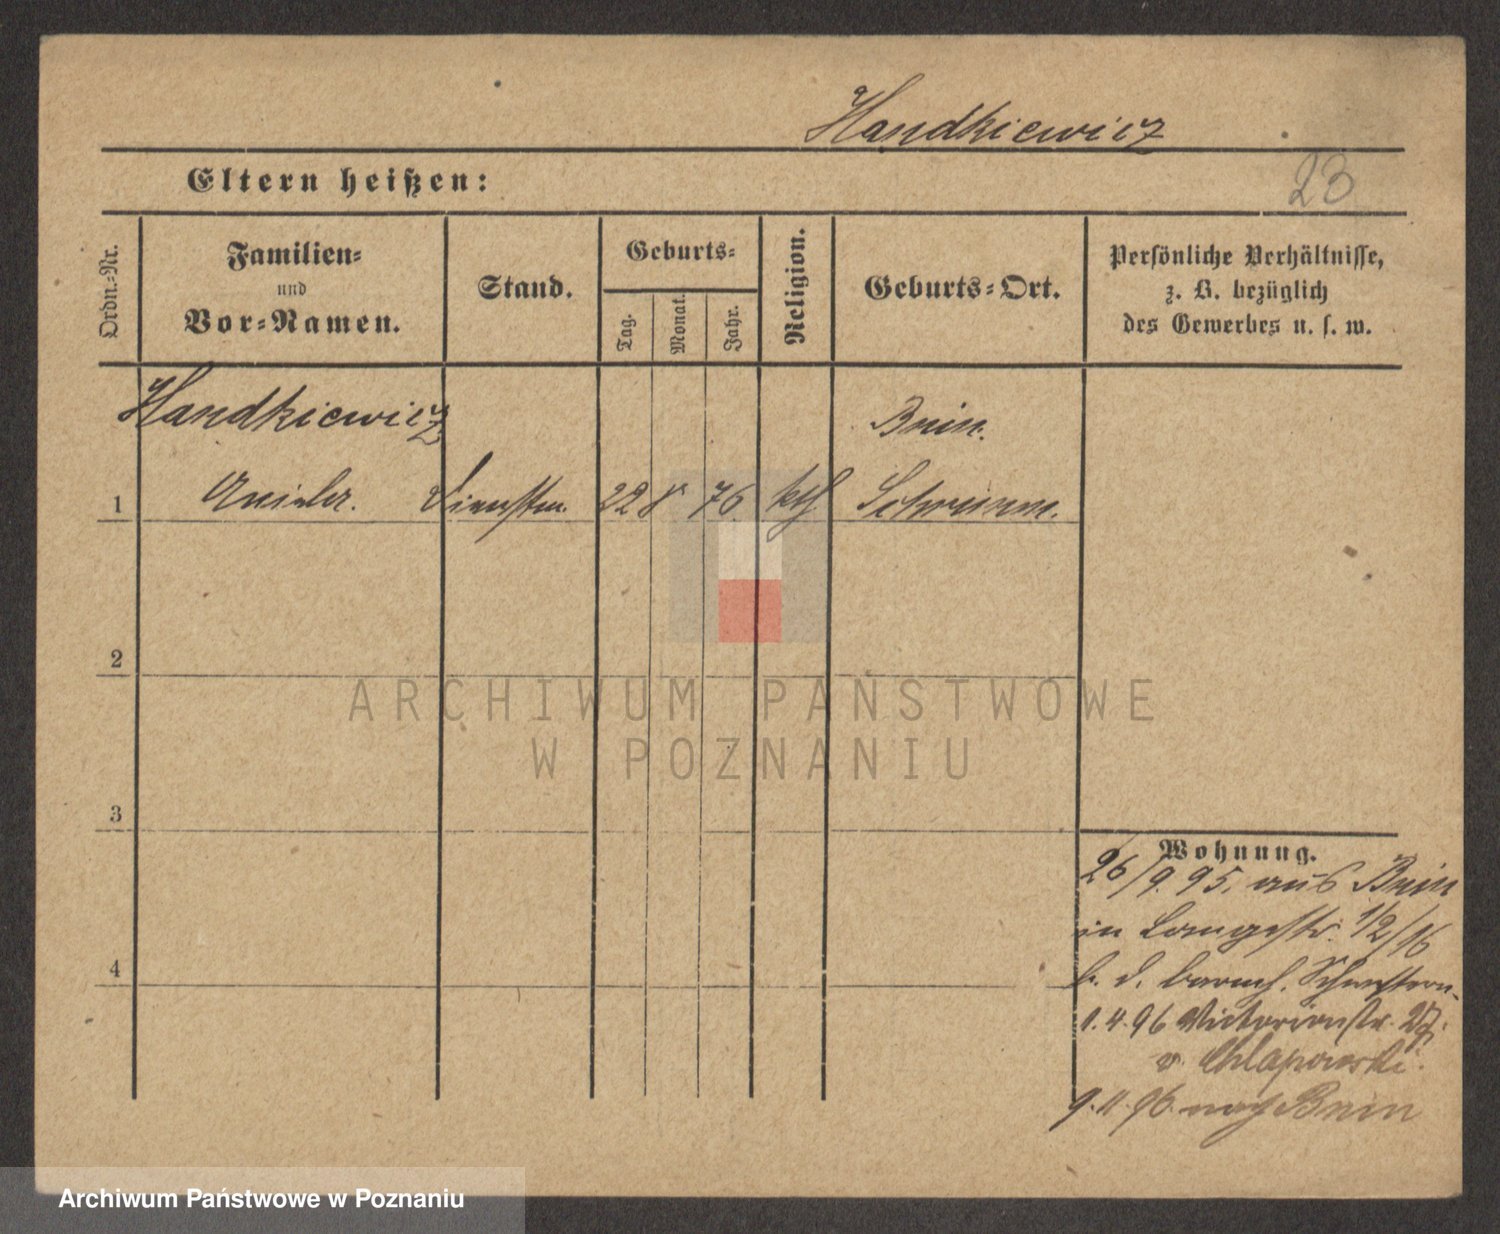 Handkiewicz
Eltern heißen:
23
Ordn.-Nr.
Familien-
und
Vor-Namen.
Stand.
Geburts-
Tag.
Monat.
Jahr.
Religion.
Geburts-Ort.
Persönliche Verhältnisse,
z. B. bezüglich
des Gewerbes u. s. w.
Handkiewicz
Bnin.
1 Aniela. Dienstm. 22 8 76 kth Schrimm.
2
ARCHIWUM PAŃSTWOWE
W POZNANIU
3
4
Wohnung.
26/9. 95. aus Bnin
in Langestr. 1/2/16
b. d. barmh. Schwestern.
1. 4. 96 Victoriastr. 27.
v. Chlapowski.
9. 11. 96. nach Bnin
Archiwum Państwowe w Poznaniu